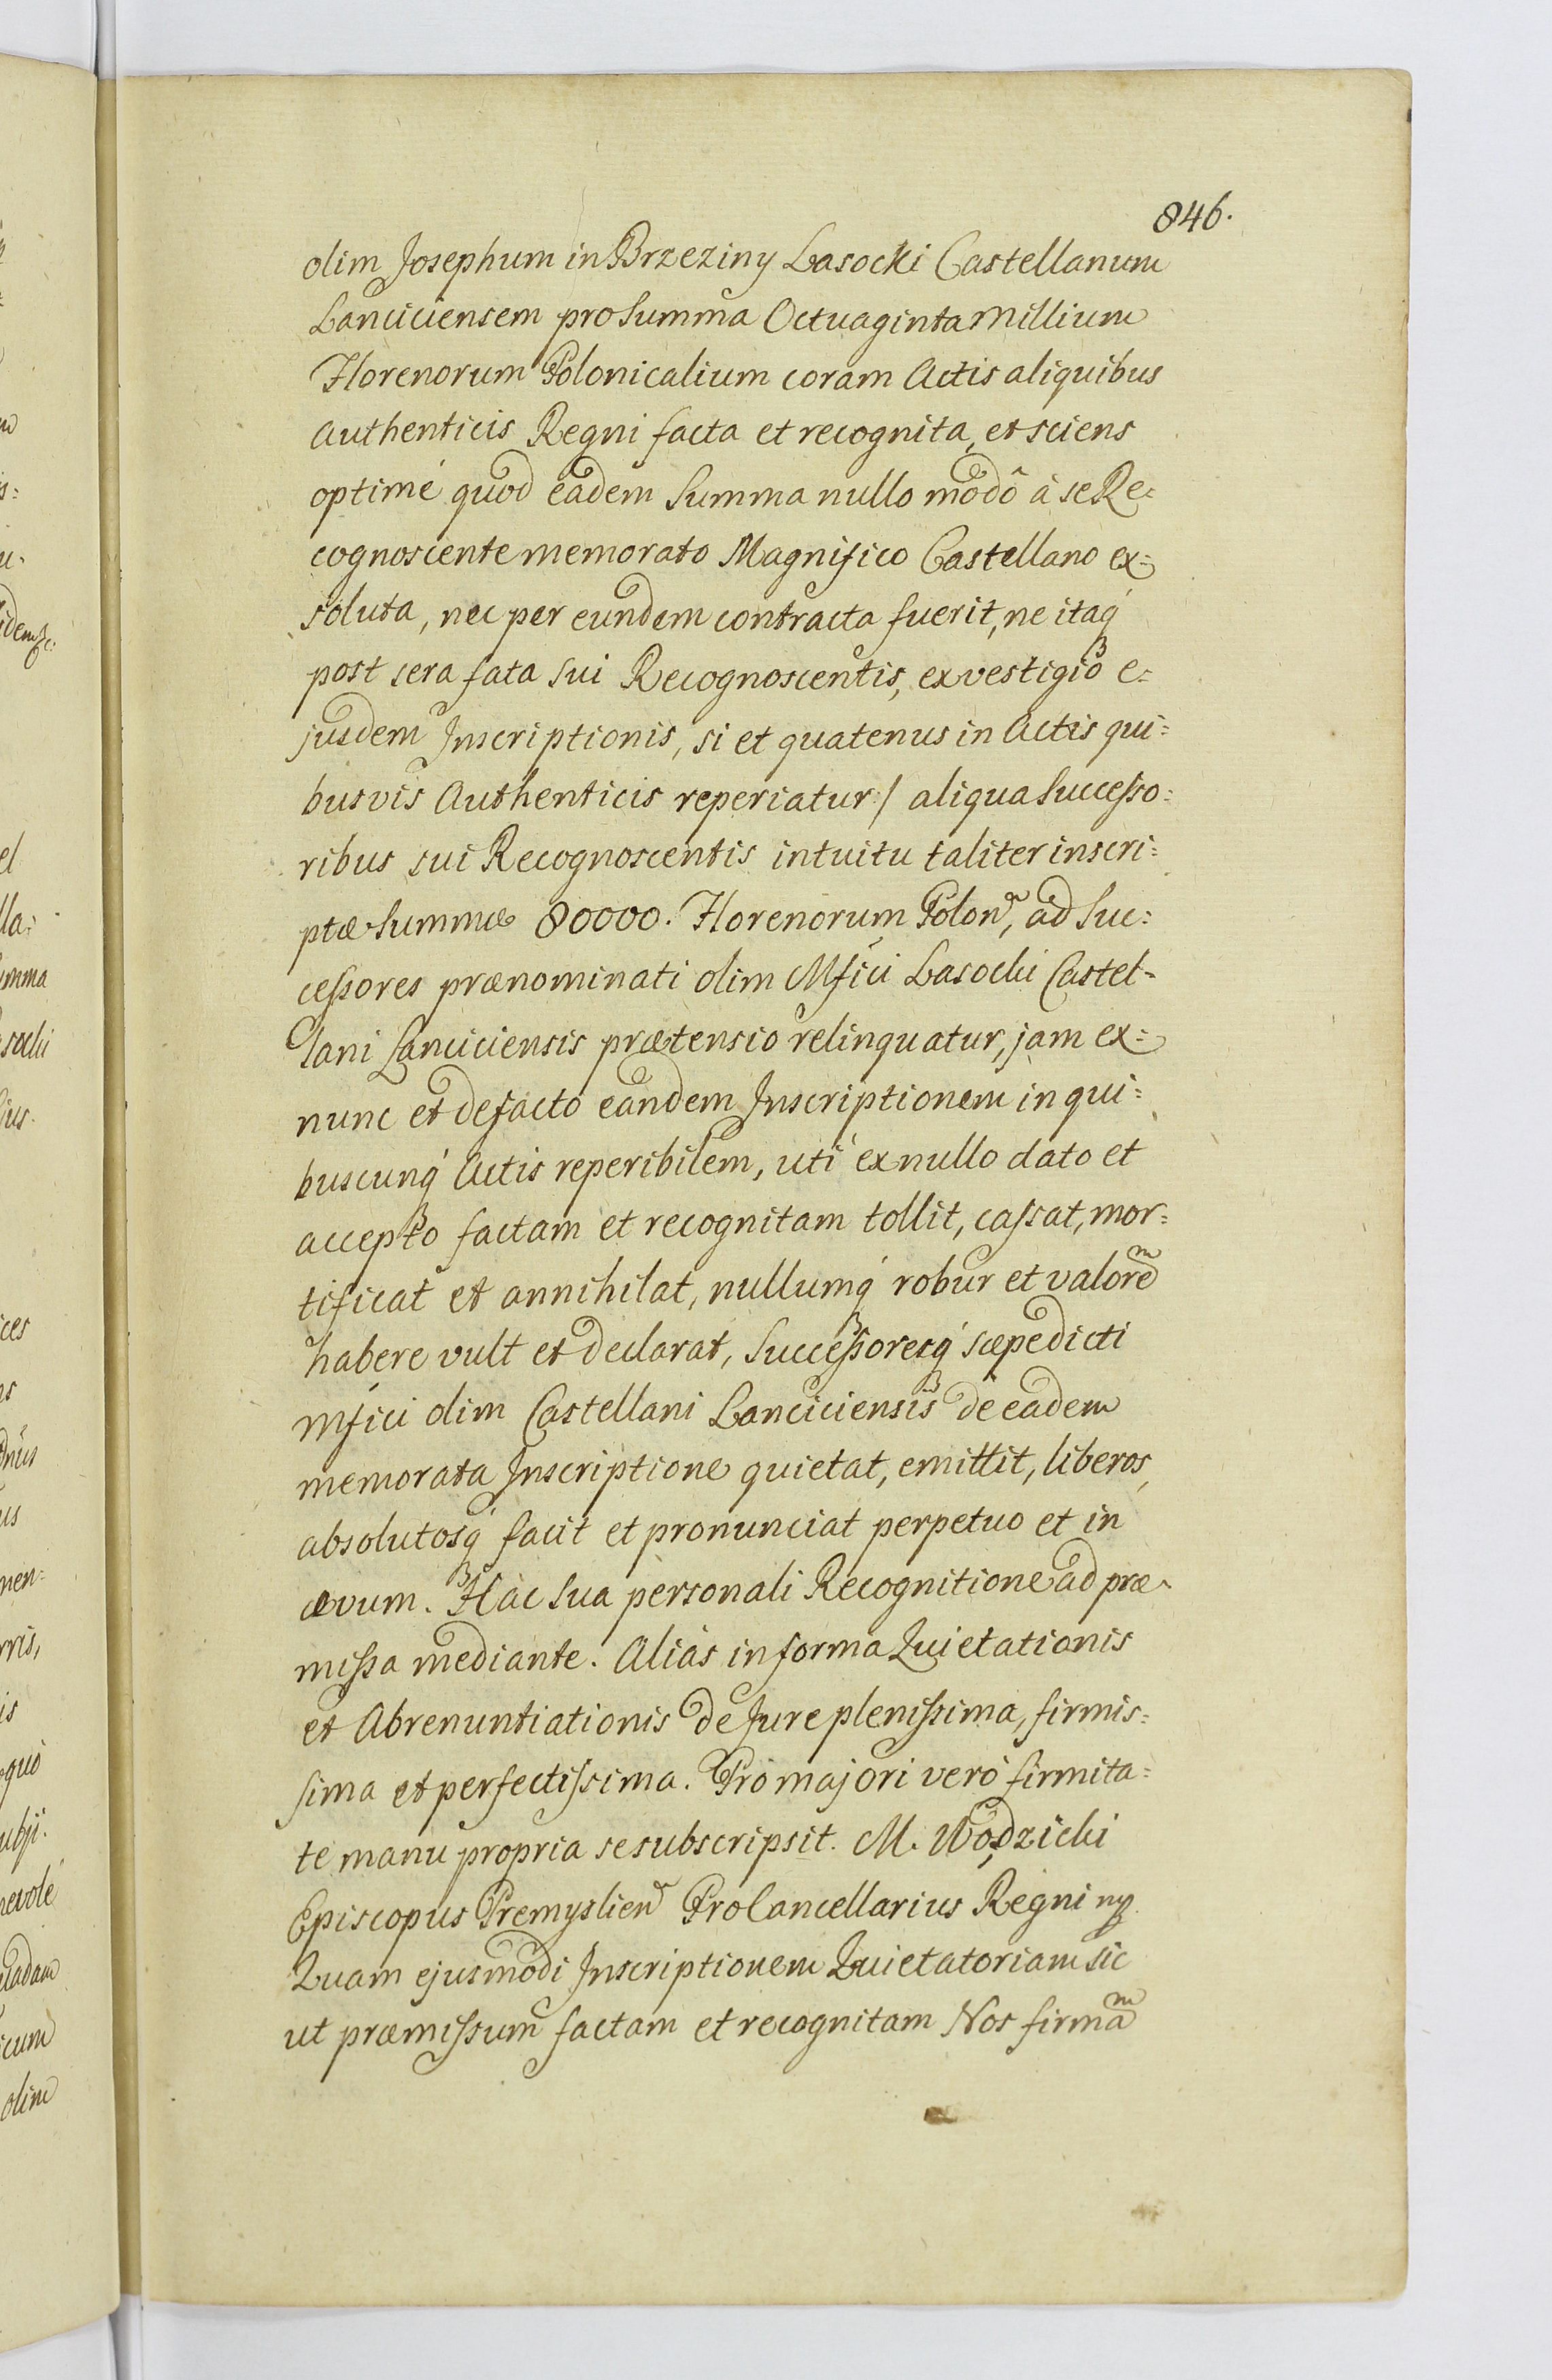 846.
olim Josephum in Brzeziny Lasocki Castellanum
Lanciciensem pro Summa Octuaginta Millium
Florenorum Polonicalium coram Actis aliquibus
Authenticis Regni facta et recognita, et sciens
optimé quod eadem Summa nullo modô à se Re=
cognoscente memorato Magnifico Castellano ex=
soluta, nec per eundem contracta fuerit, ne itaq́ꝫ
post sera fata sui Recognoscentis, ex vestigio e=
jusdem Inscriptionis, si et quatenus in Actis qui=
busvis Authenticis reperiatur :/ aliqua Successo=
ribus sui Recognoscentis intuitu taliter inscri=
ptæ Summæ 80000. Florenorum Polon, ad Suc=
cessores prænominati olim Mfici Lasocki Castel=
lani Lanciciensis prætensio relinquatur, jam ex=
nunc et defacto eandem Inscriptionem in qui=
buscunq́ꝫ Actis reperibilem, uti ex nullo dato et
accepto factam et recognitam tollit, cassat, mor=
tificat et annihilat, nullumq́ꝫ robur et valorem
habere vult et declarat, Successoresq́ꝫ sæpedicti
Mfici olim Castellani Lanciciensis de eadem
memorata Inscriptione quietat, emittit, liberos,
absolutosq́ꝫ facit et pronunciat perpetuo et in
ævum. Hac Sua personali Recognitione ad præ=
missa mediante. Aliàs in forma Quietationis
et Abrenuntiationis de Jure plenissima, firmis=
sima et perfectissima. Pro majori verò firmita=
te manu propria se subscripsit. M. Wodzicki
Episcopus Premyslien ProCancellarius Regni mp
Quam ejusmodi Inscriptionem Quietatoriam sic
ut præmissum factam et recognitam Nos firmam